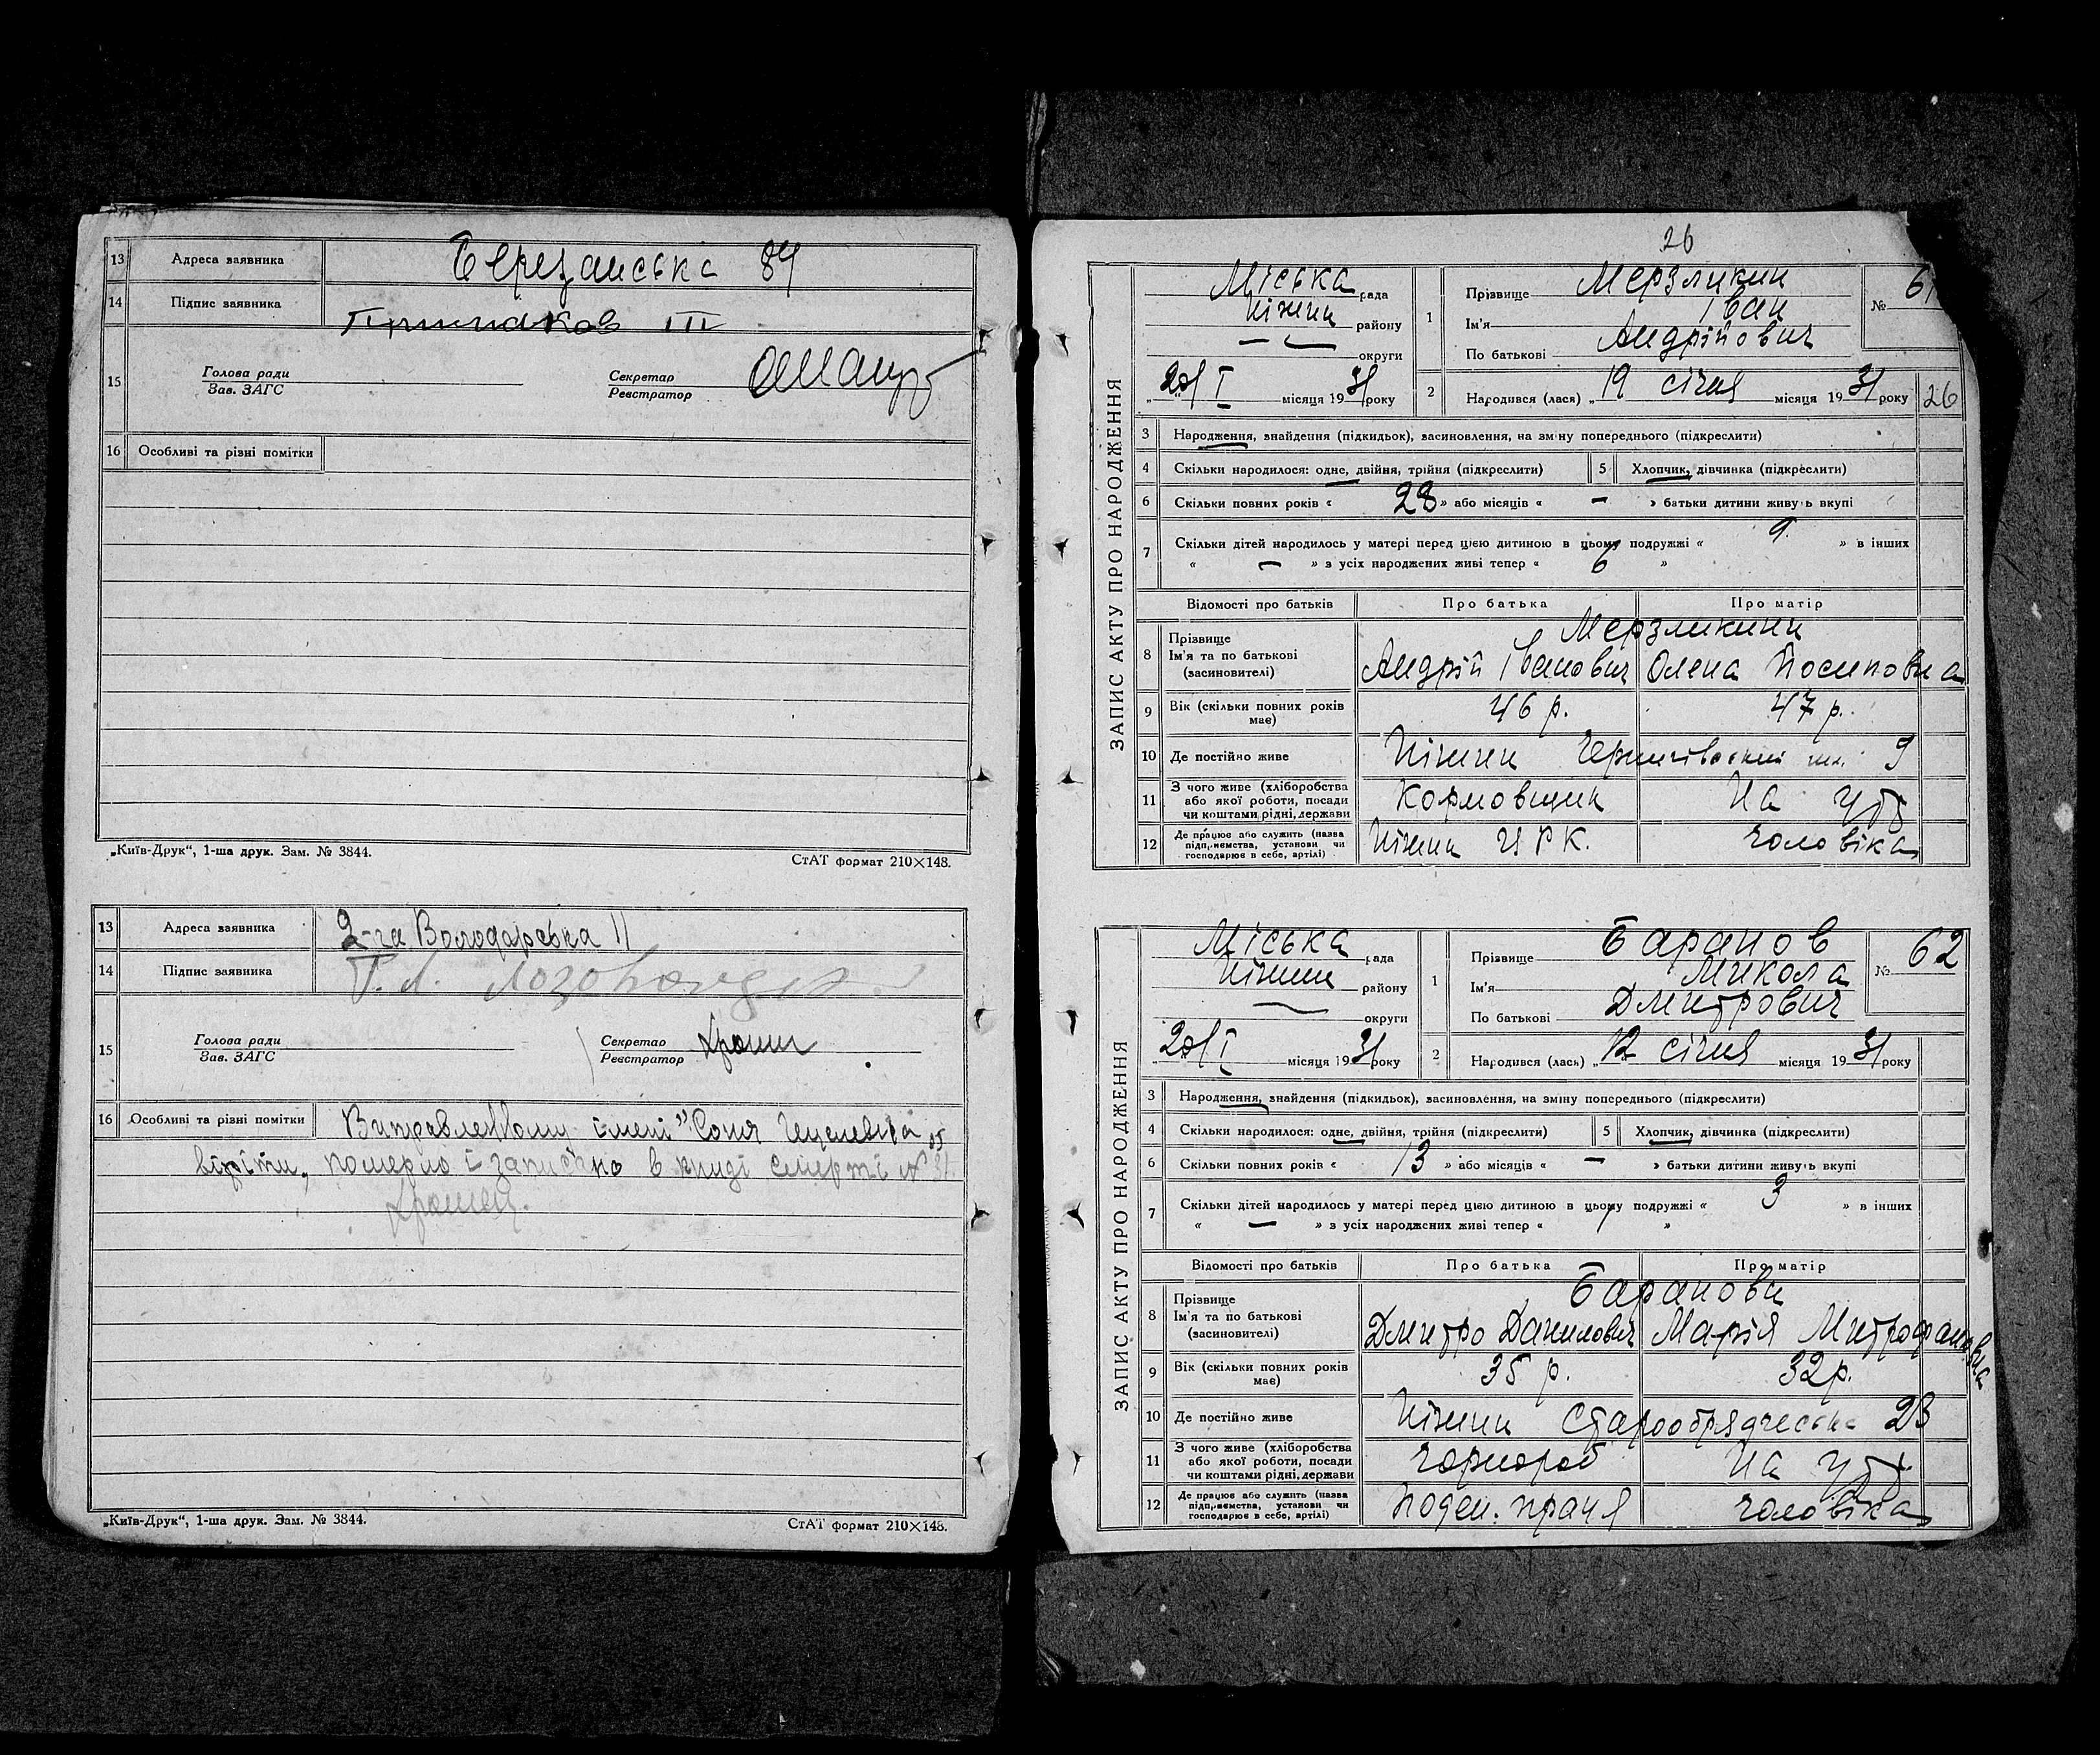 13 Адреса заявника Березанська 84
14 Підпис заявника
15 Голова ради Секретар
Зав. ЗАГС Реєстратор
16 Особливі та різні помітки
„Київ-Друк“, 1-ша друк. Зам. № 3844. СтАТ формат 210×148.
13 Адреса заявника 2-га Володарська 11
14 Підпис заявника Г. Л.
15 Голова ради Секретар
Зав. ЗАГС Реєстратор
16 Особливі та різні помітки імені „Соня
вірити, померло і записано в книзі смерті №
„Київ-Друк“, 1-ша друк. Зам. № 3844. СтАТ формат 210×148.
26
ЗАПИС АКТУ ПРО НАРОДЖЕННЯ
Міська рада
Ніжин району
— — округи
20/I місяця 1931 року
1 Прізвище Мерзликин
Ім'я Іван
По батькові Андрійович
№ 61
2 Народився (лася) „19 січня місяця 1931 року 26
3 Народження, знайдення (підкидьок), засиновлення, на зміну попереднього (підкреслити)
4 Скільки народилося: одне, двійня, трійня (підкреслити) 5 Хлопчик, дівчинка (підкреслити)
6 Скільки повних років « 28 » або місяців « — » батьки дитини живуть вкупі
7 Скільки дітей народилось у матері перед цією дитиною в цьому подружжі « 9 » в інших
« — » з усіх народжених живі тепер « 6 »
Відомості про батьків Про батька Про матір
8 Прізвище Мерзликини
Ім'я та по батькові Андрій Іванович Олена Йосиповна
(засиновителі)
9 Вік (скільки повних років має) 46 р. 47 р.
10 Де постійно живе Ніжин Чернигівский шл. 9
11 З чого живе (хліборобства або якої роботи, посади чи коштами рідні, держави Кормовщик На утр
12 Де працює або служить (назва підприємства, установи чи господарює в себе, артілі) Ніжин Ц Р К. чоловіка
ЗАПИС АКТУ ПРО НАРОДЖЕННЯ
Міська рада
Ніжин району
— округи
20/I місяця 1931 року
1 Прізвище Баранов
Ім'я Микола
По батькові Дмитрович
№ 62
2 Народився (лася) „12 січня місяця 1931 року
3 Народження, знайдення (підкидьок), засиновлення, на зміну попереднього (підкреслити)
4 Скільки народилося: одне, двійня, трійня (підкреслити) 5 Хлопчик, дівчинка (підкреслити)
6 Скільки повних років « 13 » або місяців « — » батьки дитини живуть вкупі
7 Скільки дітей народилось у матері перед цією дитиною в цьому подружжі « 3 » в інших
« — » з усіх народжених живі тепер « 1 »
Відомості про батьків Про батька Про матір
8 Прізвище Баранови
Ім'я та по батькові Дмитро Данилович Марія Митрофановна
(засиновителі)
9 Вік (скільки повних років має) 35 р. 32 р.
10 Де постійно живе Ніжин Старообрядческа 23
11 З чого живе (хліборобства або якої роботи, посади чи коштами рідні, держави Чорнороб На утр.
12 Де працює або служить (назва підприємства, установи чи господарює в себе, артілі) Поден. праця чоловіка